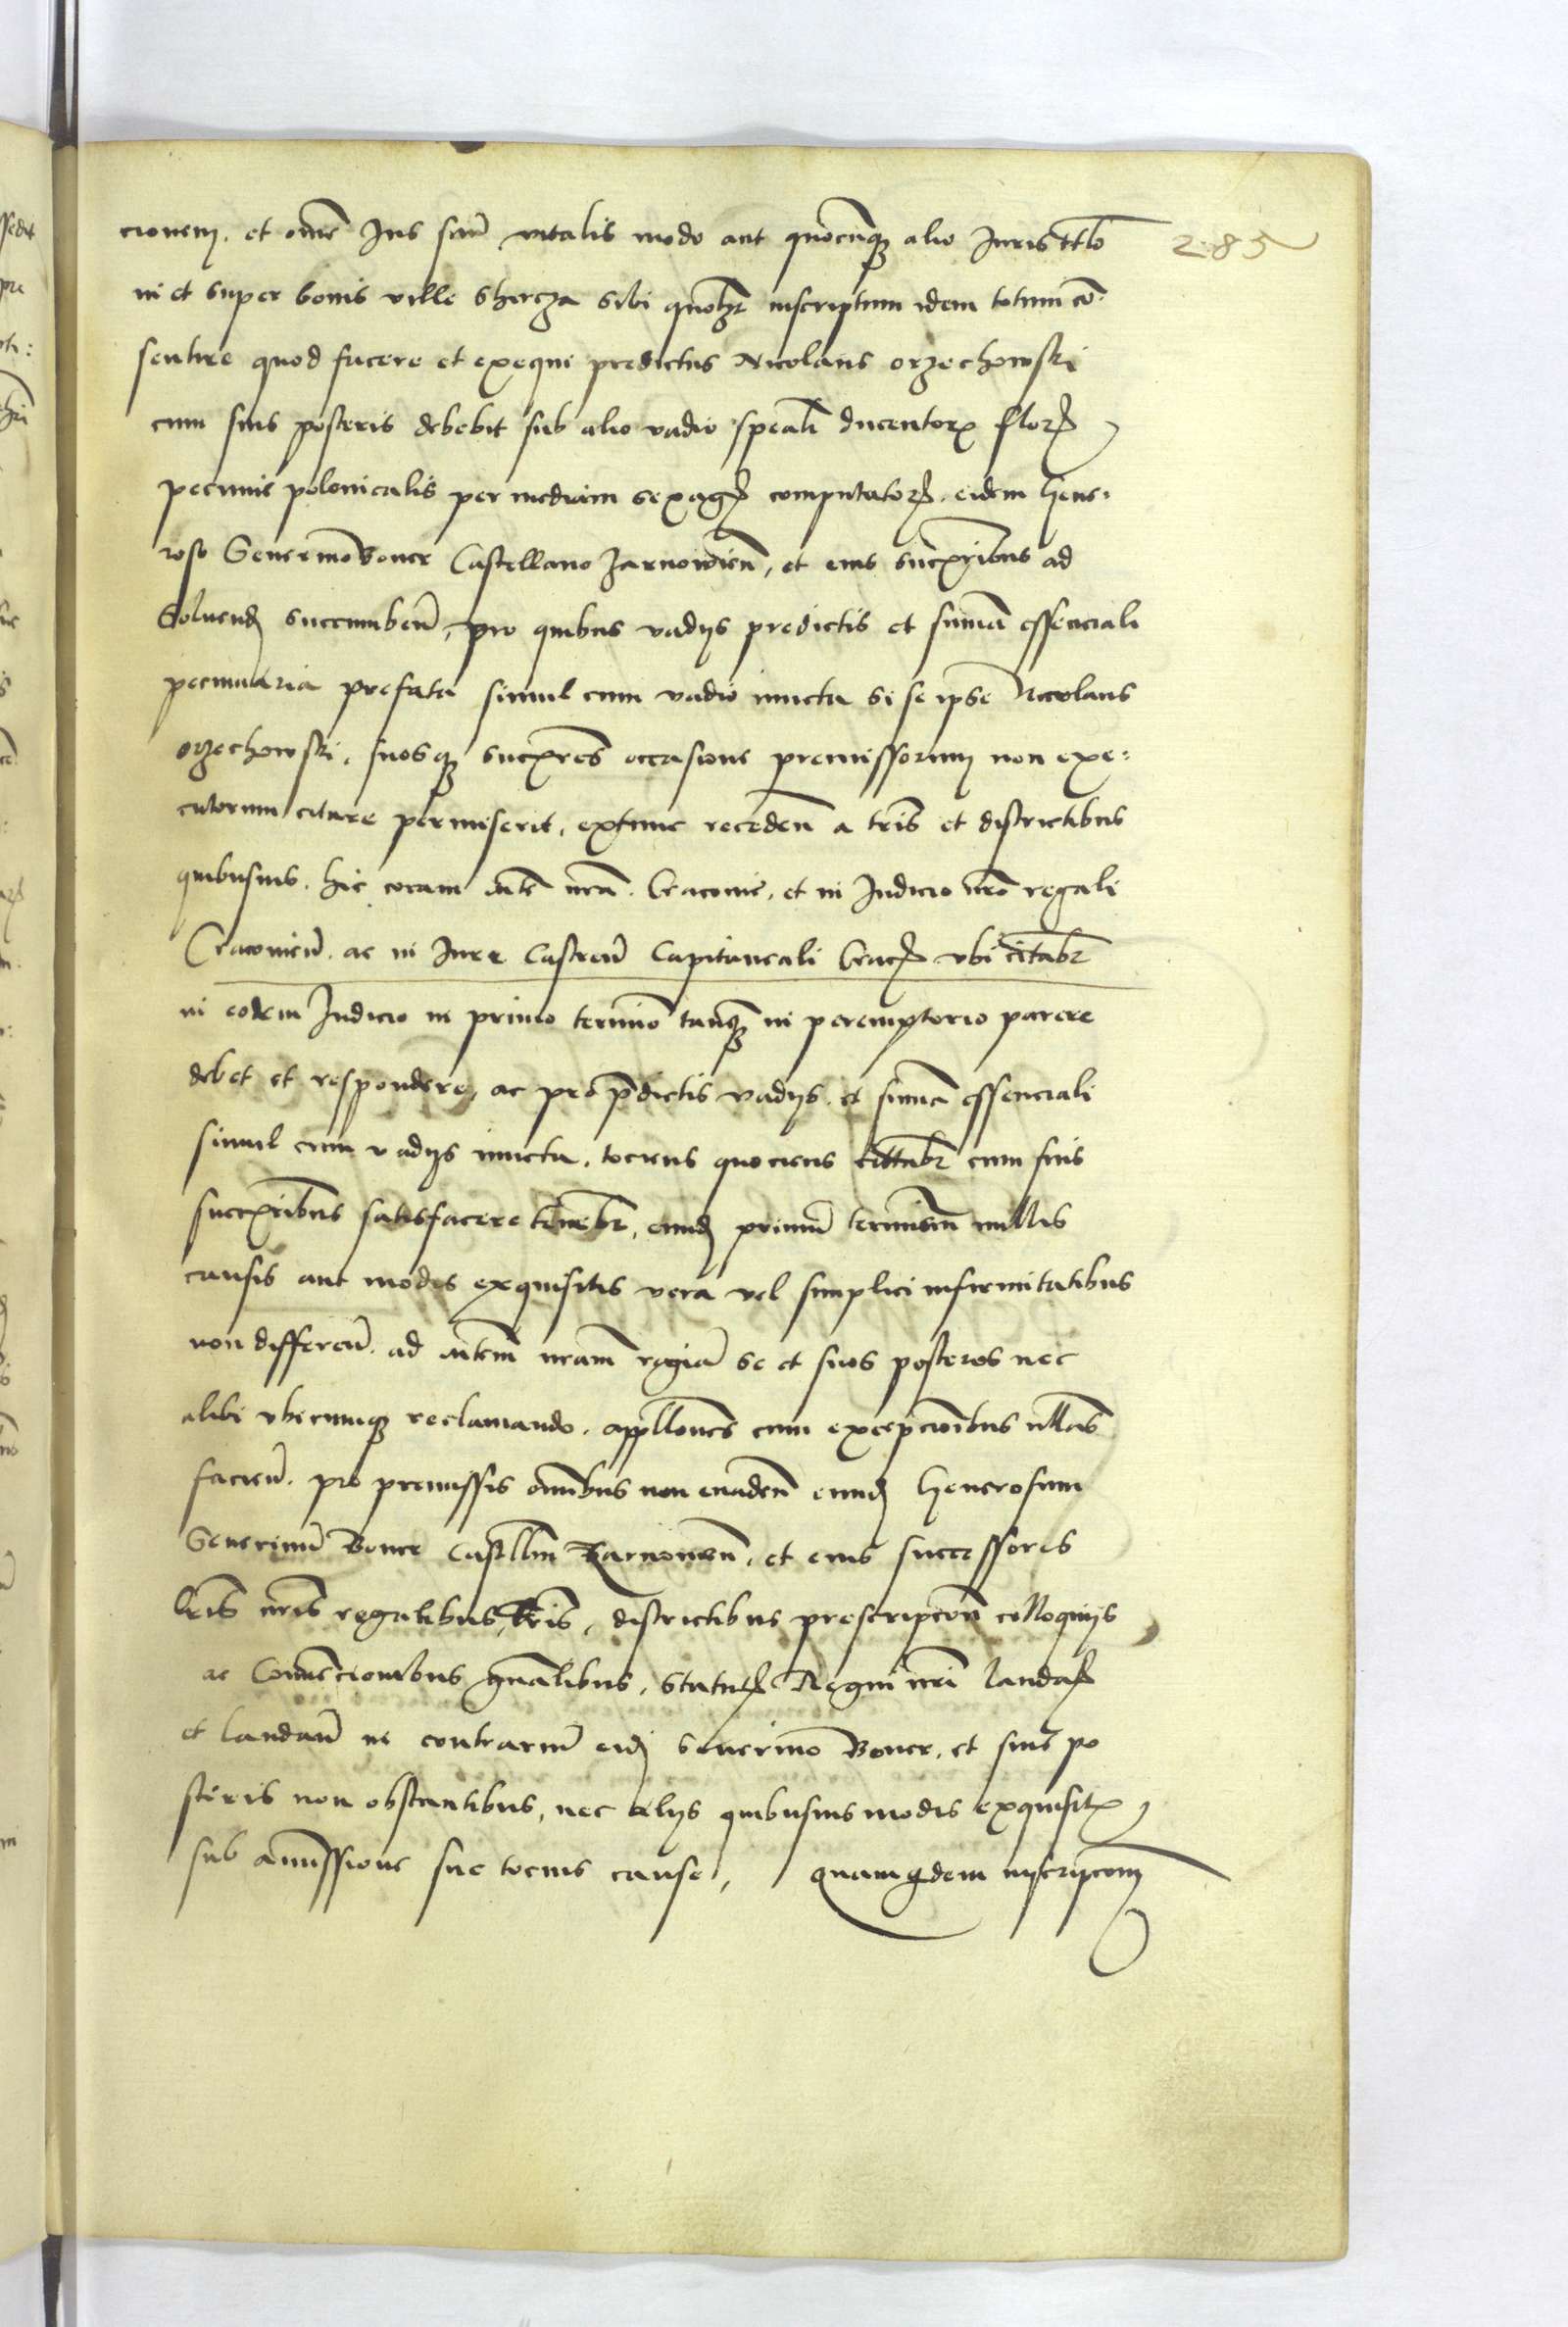 cionem. et omē Jus suū vitalis modo aut quocūqȝ alio Juris ttlo 285
in et super bonis ville Sherza sibi quolꝫ inscriptum idem totum cō-
sentire quod facere et exequi predictus Nicolaus orzechowski
cum suis posteris debebit sub alio vadio spēali ducentorꝝ florꝭ
pecunie polonicalis per mediam sexagꝭ computatorꝭ. eidem Gene-
roso Seuerino Boner Castellano Zarnowieñ, et eius succꝰribus ad
Soluendꝭ succumbeñ, pro quibus vadijs predictis et suma essenciali
pecuniaria prefata simul cum vadio iuncta si se ipse Nicolaus
orzechowski, suosqȝ succꝰres occasione premissorum non exe-
cutorum citare permiserit, extunc recedeñ a tris et districtibus
quibusuis. hic coram Mte nrā. Cracouie, et in Judicio nrō regali
Cracouieñ. ac in Jure Castreñ Capitaneali Cracꝭ vbi citabꝫ
in eodem Judicio in primo termino tanqȝ in peremptorio parere
debet et respondere, ac pro p̄dictis vadijs. et suma essenciali
simul cum vadijs iuncta. tociens quociens cittabꝫ cum suis
succꝰribus satisfacere tenebꝫ, eundꝭ primū terminum nullis
causis aut modis exquisitis vera vel simplici infirmitatibus
non differeñ. ad Mtem nram regiā se et suos posteros nec
alibi vbicumqȝ reclamando. appllones cum excepcionibus ullas
facieñ. pro premissis omībus non euadeñ eundꝭ Generosum
Seuerinū Boner Castllm Zarnowieñ. et eius successores
lrīs nrīs regalibus, tris, districtibus proscripcoñ colloquijs
ac Conuēcionibus gnālibus, Statutꝭ Regni nrī laudatꝭ
et laudañ in contrariū eidꝭ Seuerino Boner. et suis po
steris non obstantibus, nec alijs quibusuis modis exquisitꝭ
sub amissione sue tocius cause, quamqdem inscripcoem